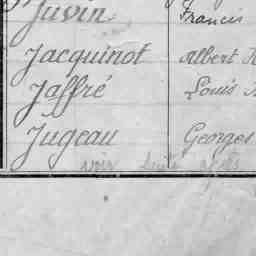 Juvin Francis
Jacquinot Albert
Jaffré Louis
Jugeau Georges
voir suite après